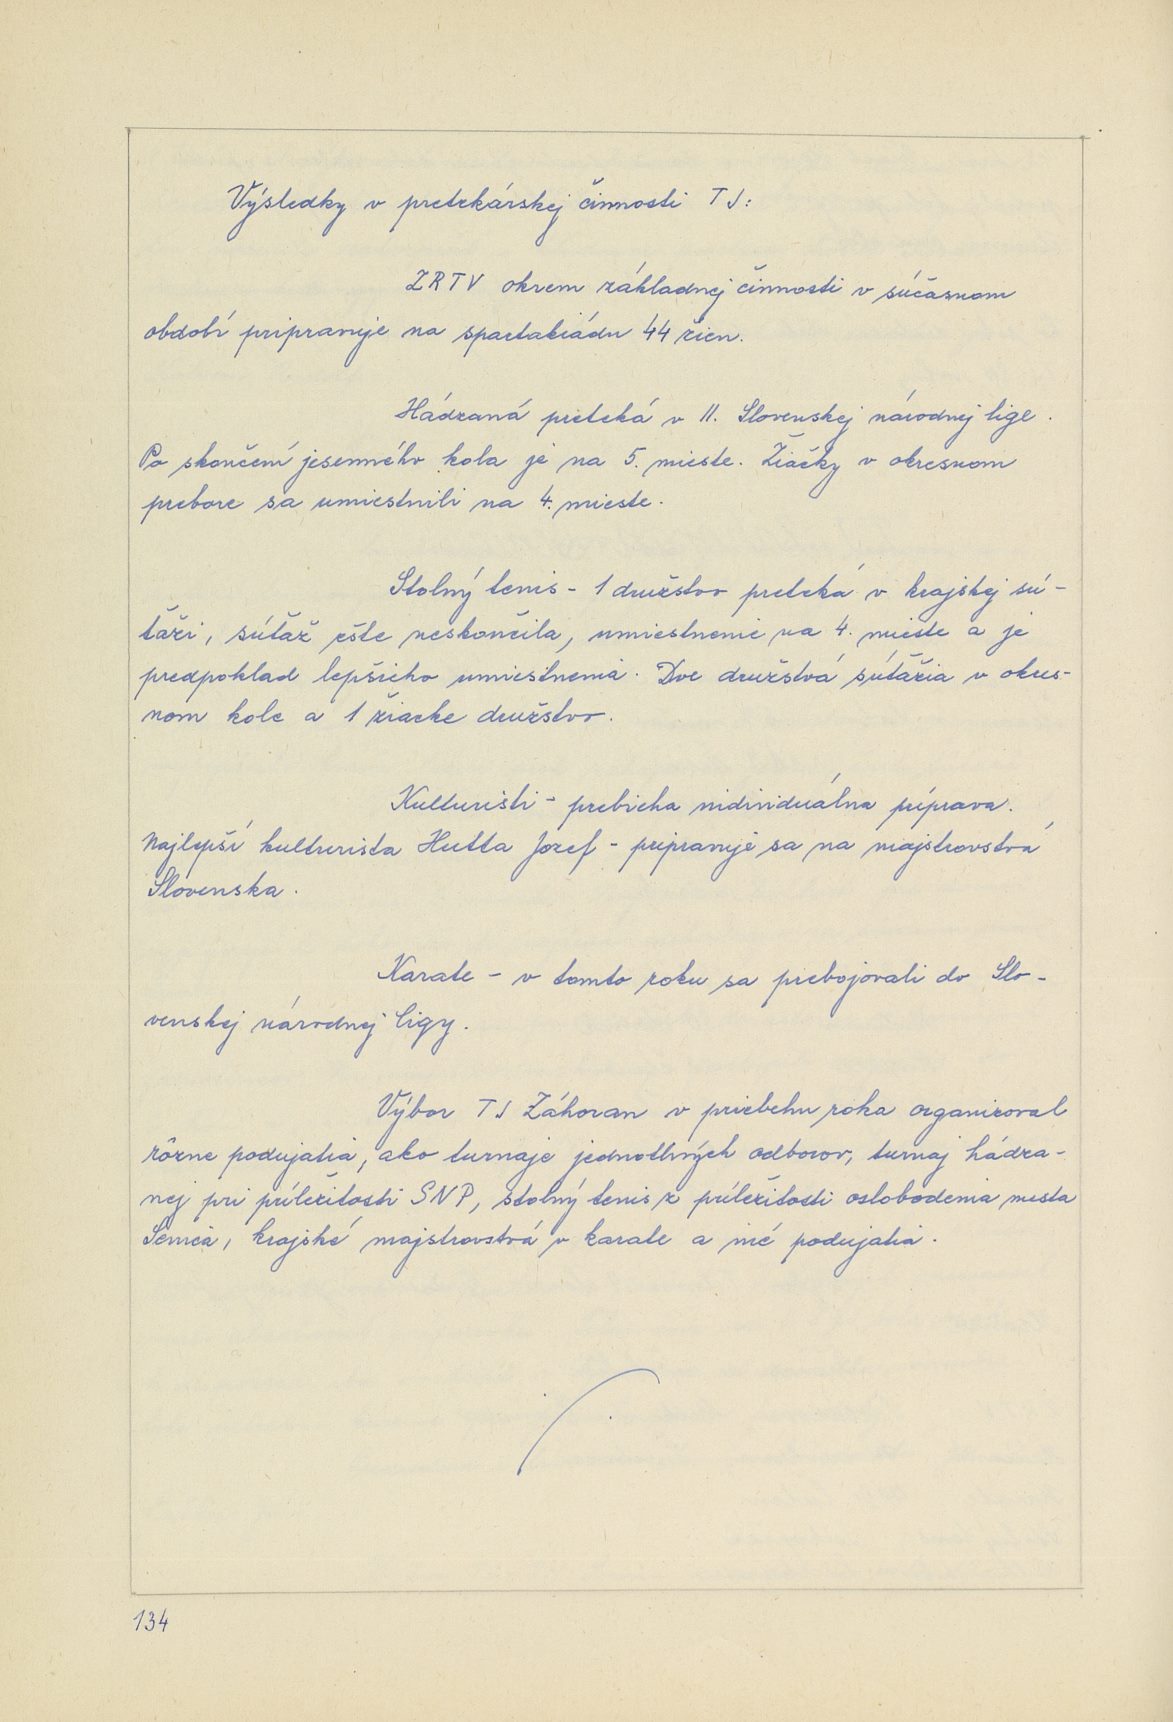 Výsledky v pretekárskej činnosti TJ:
ZRTV okrem základnej činnosti v súčasnom
období pripravuje na spartakiádu 44 žien.
Hádzaná preteká v II. Slovenskej národnej lige.
Po skončení jesenného kola je na 5. mieste. Žiačky v okresnom
prebore sa umiestnili na 4. mieste.
Stolný tenis - 1 družstvo preteká v krajskej sú-
ťaži, súťaž ešte neskončila, umiestnenie na 4. mieste a je
predpoklad lepšieho umiestnenia. Dve družstvá súťažia v okres-
nom kole a 1 žiacke družstvo.
Kulturisti - prebieha individuálna príprava.
Najlepší kulturista Hutta Jozef - pripravuje sa na majstrovstvá
Slovenska.
Karate - v tomto roku sa prebojovali do Slo-
venskej národnej ligy.
Výbor TJ Záhoran v priebehu roka organizoval
rôzne podujatia, ako turnaje jednotlivých odborov, turnaj hádza-
nej pri príležitosti SNP, stolný tenis z príležitosti oslobodenia mesta
Senica, krajské majstrovstvá v karate a iné podujatia.
134